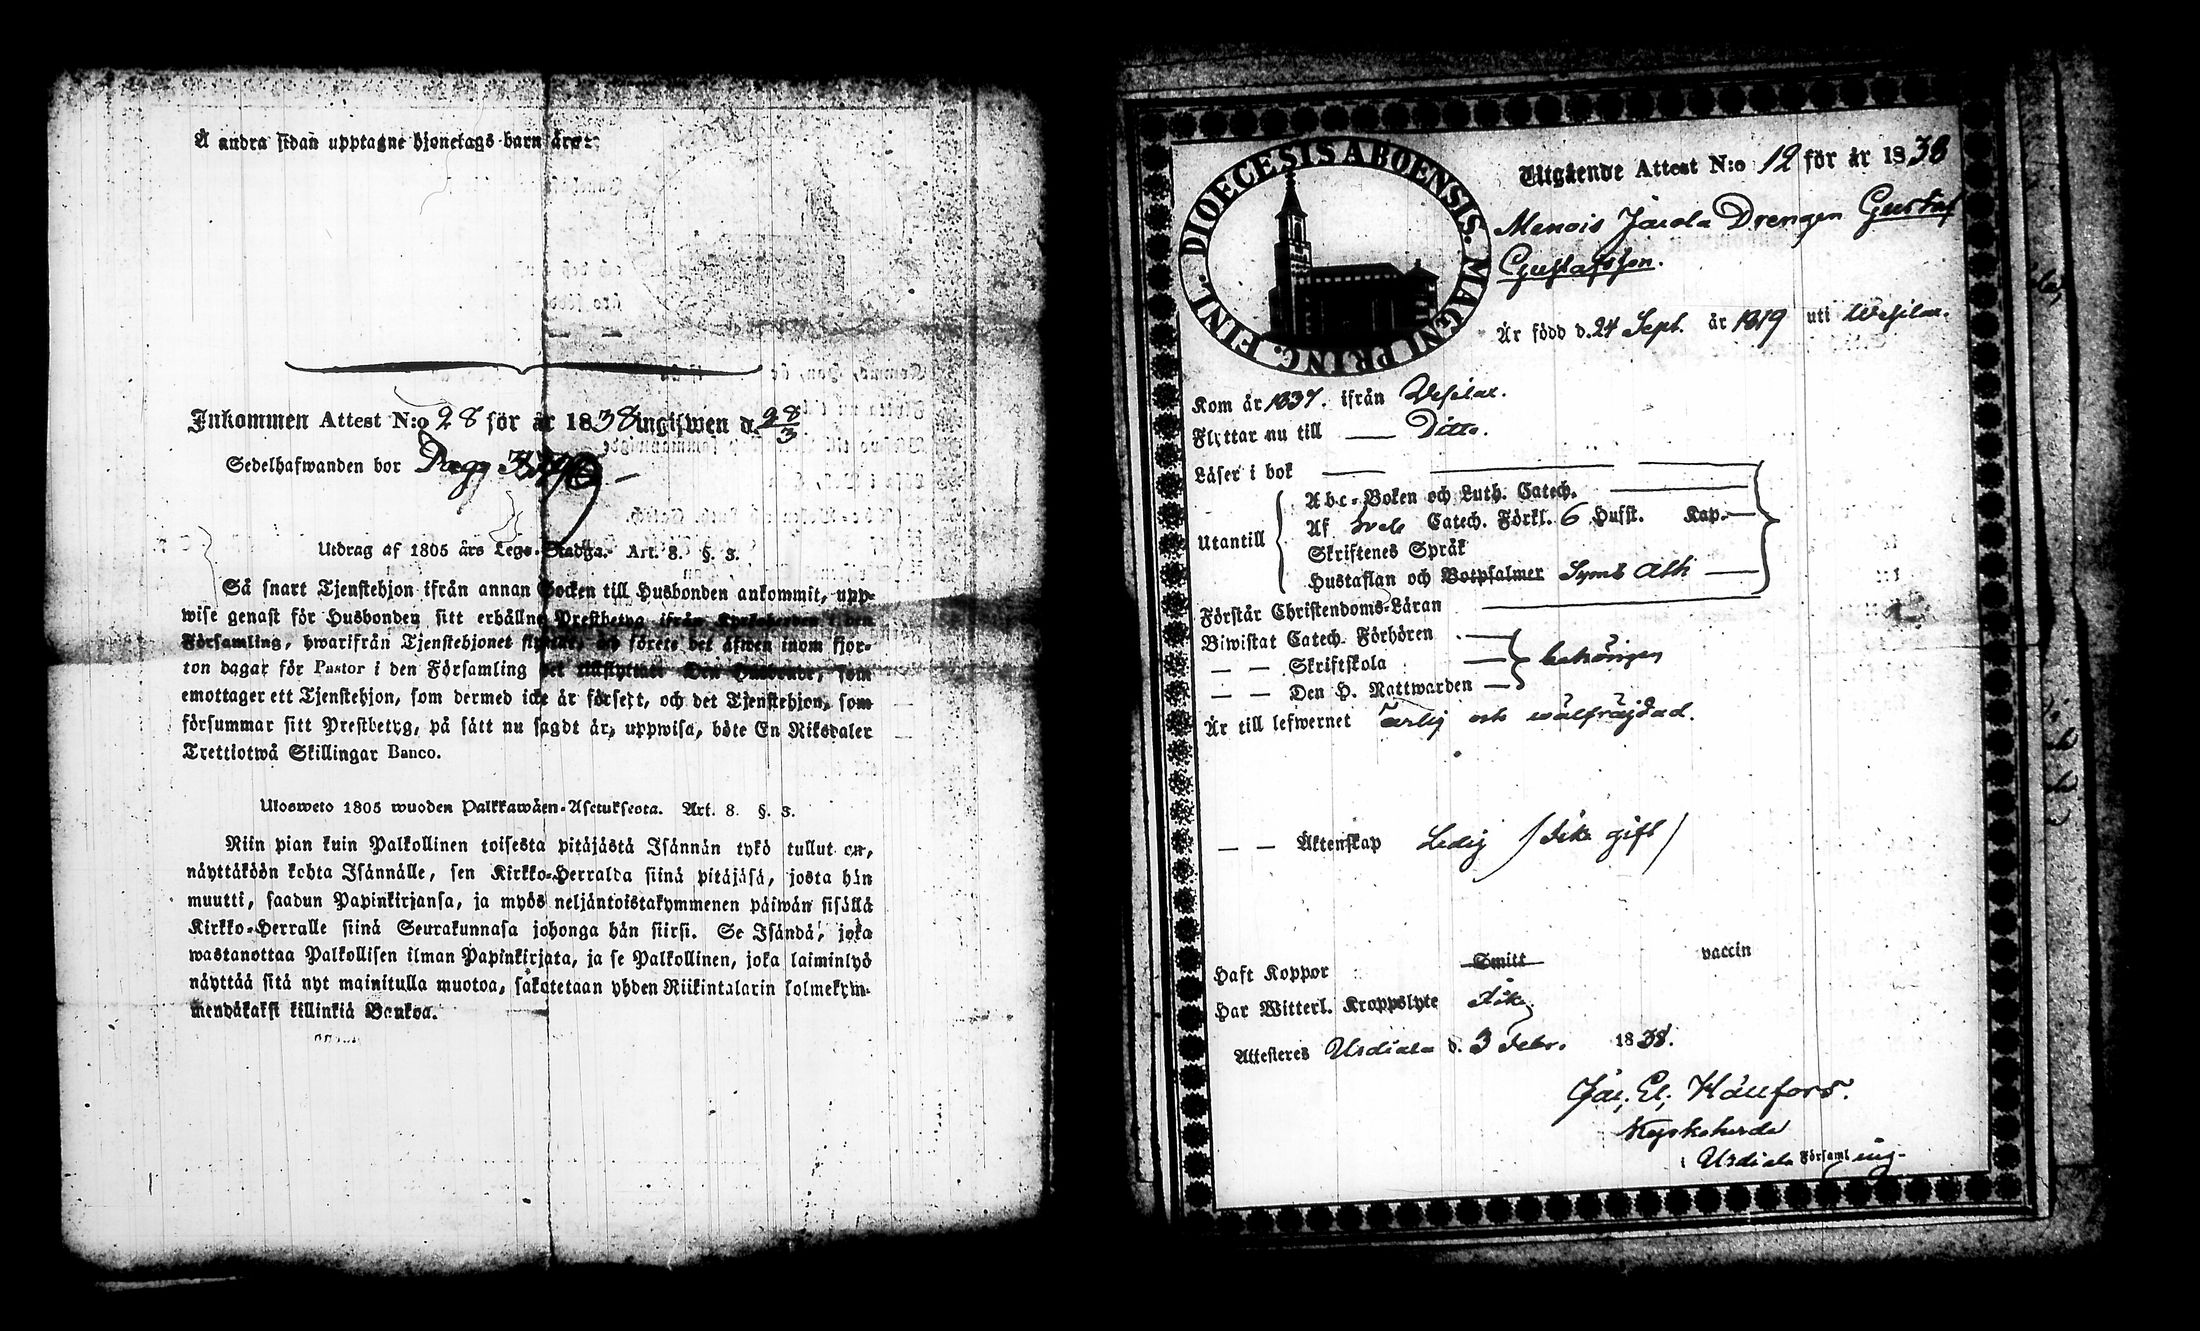 Å andra sidan upptagne hjonelags barn äro:
Inkommen Attest N:o 28 för år 1838 ingifwen d. 28/3
Sedelhafwanden bor Pagg
Utdrag af 1805 års Lego-Stadga. Art. 8. §. 3.
Så snart Tjenstehjon ifrån annan Socken till Husbonden ankommit, upp-
wise genast för Husbonden sitt erhållne Prestbetyg ifrån Kyrkoherden i den
Församling, hwarifrån Tjenstehjonet flyttat, och förete det äfwen inom fjor-
ton dagar för Pastor i den Församling det tillflyttat. Den Husbonde, som
emottager ett Tjenstehjon, som dermed icke är försedt, och det Tjenstehjon, som
försummar sitt Prestbetyg, på sätt nu sagdt är, uppwisa, böte En Riksdaler
Trettiotwå Skillingar Banco.
Ulosweto 1805 wuoden Palkkawäen-Asetuksesta. Art. 8. §. 3.
Niin pian kuin Palkollinen toisesta pitäjästä Isännän tykö tullut on,
näyttäköön kohta Isännälle, sen Kirkko-Herralda siinä pitäjäsä, josta hän
muutti, saadun Papinkirjansa, ja myös neljäntoistakymmenen päiwän sisällä
Kirkko-Herralle siinä Seurakunnasa johonga hän siirsi. Se Isändä, joka
wastanottaa Palkollisen ilman Papinkirjata, ja se Palkollinen, joka laiminlyö
näyttää sitä nyt mainitulla muotoa, sakotetaan yhden Riikintalarin kolmekym-
mendäkaksi killinkiä Bankoa.
DIOECESIS ABOENSIS. MAGNI PRINC. FINL.
Utgående Attest N:o 12 för år 1838
Menois Jaola Drengen Gustaf
Gustafsson.
Är född d. 24 Sept. år 1819 uti Wesilax.
Kom år 1837. ifrån Wesilax.
Flyttar nu till — Ditto.
Läser i bok
Abc-Boken och Luth. Catech.
Utantill Af Catech. Förkl. 6 Hufst. Kap.
Skriftenes Språk
Hustaflan och Botpsalmer Symb Ath
Förstår Christendoms-Läran
Biwistat Catech. Förhören
— — Skriftskola behörigen
— — Den H. Nattwarden
Är till lefwernet ärlig och wälfräjdad.
— — Äktenskap Ledig / Icke gift /
Haft Koppor Smitt vaccin
Har Witterl. Kroppslyte Icke
Attesteres Urdiala d. 3 Febr. 1838.
Jac. El. Hällfors.
Kyrkoherde
i Urdiala Församling.